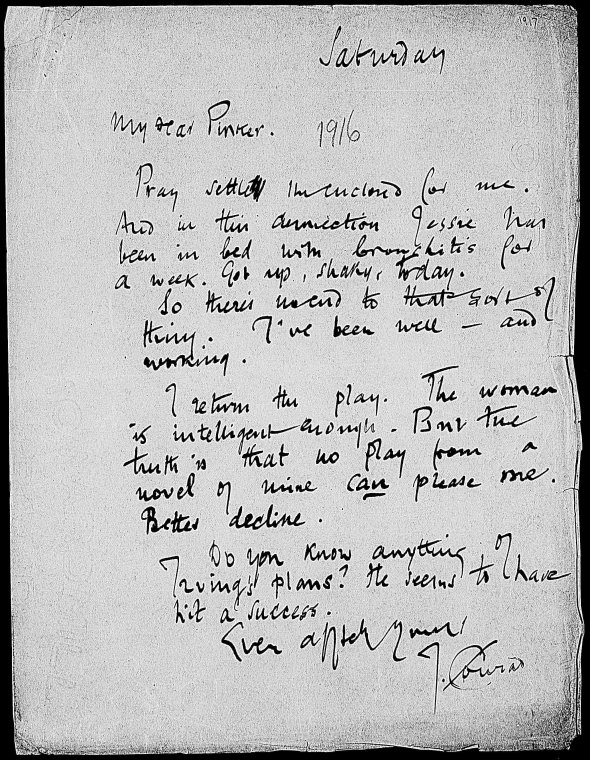 1917
Saturday
My dear Pinker. 1916
Pray settle the enclosed for me.
And in this connection Jessie has
been in bed with bronchitis for
a week. Got up, shaky, today.
So there's no end to that sort of
thing. I've been well — and
working.
I return the play. The woman
is intelligent enough. But the
truth is that no play from a
novel of mine can please me.
Better decline.
Do you know anything of
Irving's plans? He seems to have
hit a success.
Ever affctly Yours
J. Conrad